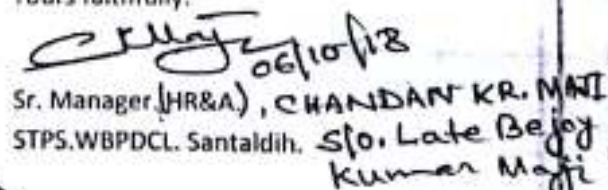 Yours faithfully.
06/10/18
Sr. Manager (HR&A), CHANDAN KR. MAJI
STPS.WBPDCL. Santaldih. S/o. Late Bejoy
Kumar Maji